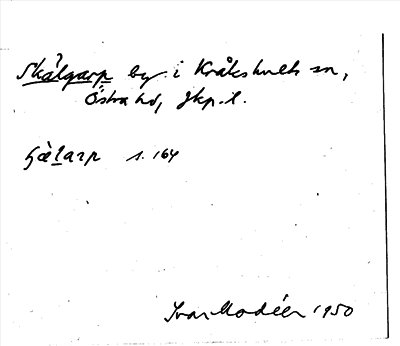 Skälgarp by i Kråkshults sn,
Östra hd, Jkp. l.
s. 164
Ivar Modéer 1950